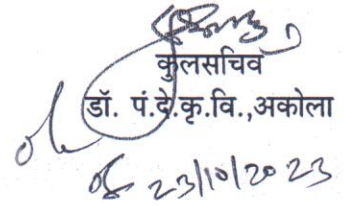 कुलसचिव
डॉ. पं.दे.कृ.वि.,अकोला
23/10/2023